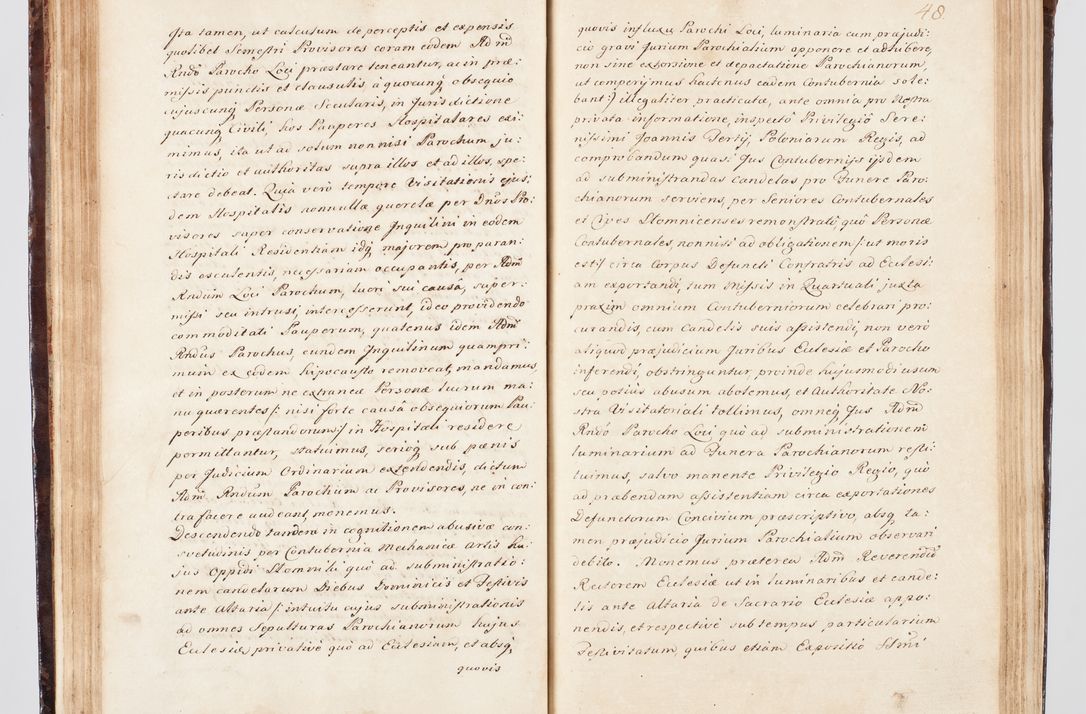 ista tamen, ut calculum de perceptis et expensis
quolibet Semestri Provisores coram eodem Adm̃
Rndo Parocho Loci præstare teneantur, ac in præ:
missis punctis et clausulis à quocunq obsequio
cujuscunq Personæ Secularis, in Jurisdictione
quacunq Civili, hos Pauperes Hospitalares exi:
mimus, ita ut ad solum non nisi Parochum ju:
ris dictio et authoritas supra illos et ad illos, spe:
ctare debeat. Quia verò tempore Visitationis ejus:
dem Hospitalis nonnullæ querelæ per Dnos Pro:
visores super conservatione Inquilini in eodem
Hospitali Residentiam idq majorem pro paran:
dis esculentis, necessariam occupantis, per Adm̃
Rndum Loci Parochum, lucri sui causa, super:
missi seu intrusi, intercesserunt, ideo providendo
commoditati Pauperum, quatenus idem Adm̃
Rndus Parochus, eundem Inquilinum quampri:
mum ex eodem hipocausto removeat, mandamus,
et in posterum ne extraneæ Personæ lucrum ma:
nu quærentes /: nisi forte causâ obsequiorum Pau:
peribus præstandorum :/ in Hospitali residere
permittantur, statuimus, serioq sub pœnis
per Judicium Ordinarium extendendis, dictum
Adm̃ Rndum Parochum ac Provisores, ne in con:
tra facere audeant, monemus.
Descendendo tandem in cognitionem abusivæ con:
svetudinis per Contubernia Mechanicæ Artis hu:
jus Oppidi Slomniki quò ad subministratio:
nem candelarum Diebus Dominicis et Festivis
ante Altaria /: intuitu cujus subministrationis
ad omnes Sepulturas Parochianorum hujus
Ecclesiæ privativè quò ad Ecclesiam, et absq
quovis
48.
quovis influxu Parochi Loci, luminaria cum præjudi:
cio gravi Jurium Parochialium apponere et adhibere,
non sine extorsione et depactatione Parochianorum,
ut comperijmus hactenus eadem Contubernia sole:
bant :/ illegaliter practicatæ, ante omnia pro Nostra
privata informatione, inspectô Privilegiô Sere:
nissimi Joannis Tertij, Poloniarum Regis, ad
comprobandum quasi Jus Contubernijs ijsdem
ad subministrandas candelas pro Funere Paro:
chianorum serviens, per Seniores Contubernales
et Cives Slomnicenses remonstratô, quô Personæ
Contubernales, non nisi ad obligationem /: ut moris
est :/ circa Corpus Defuncti Confratris ad Ecclesi:
am exportandi, tum Missis in Quartuali juxta
praxim omnium Contuberniorum celebrari pro:
curandis, cum Candelis suis assistendi, non verò
aliquod præjudicium Juribus Ecclesiæ et Parocho
inferendi, obstringuntur, proinde hujusmodi usum
seu potius abusum abolemus, et Authoritate No:
stra Visitatoriali tollimus, omneq Jus Adm̃
Rndô Parocho Loci quò ad subministrationem
luminarium ad Funera Parochianorum resti:
tuimus, salvo manente Privilegio Regio, quò
ad præbendam assistentiam circa exportationes
Defunctorum Concivium præscriptivo, absq ta:
men præjudicio Jurium Parochialium observari
debito. Monemus præterea Adm̃ Reverendũ
Rectorem Ecclesiæ ut in luminaribus et cande:
lis ante Altaria de Sacrario Ecclesiæ appo:
nendis, et respectivè sub tempus particularium
Festivitatum, quibus etiam Expositio SSmi